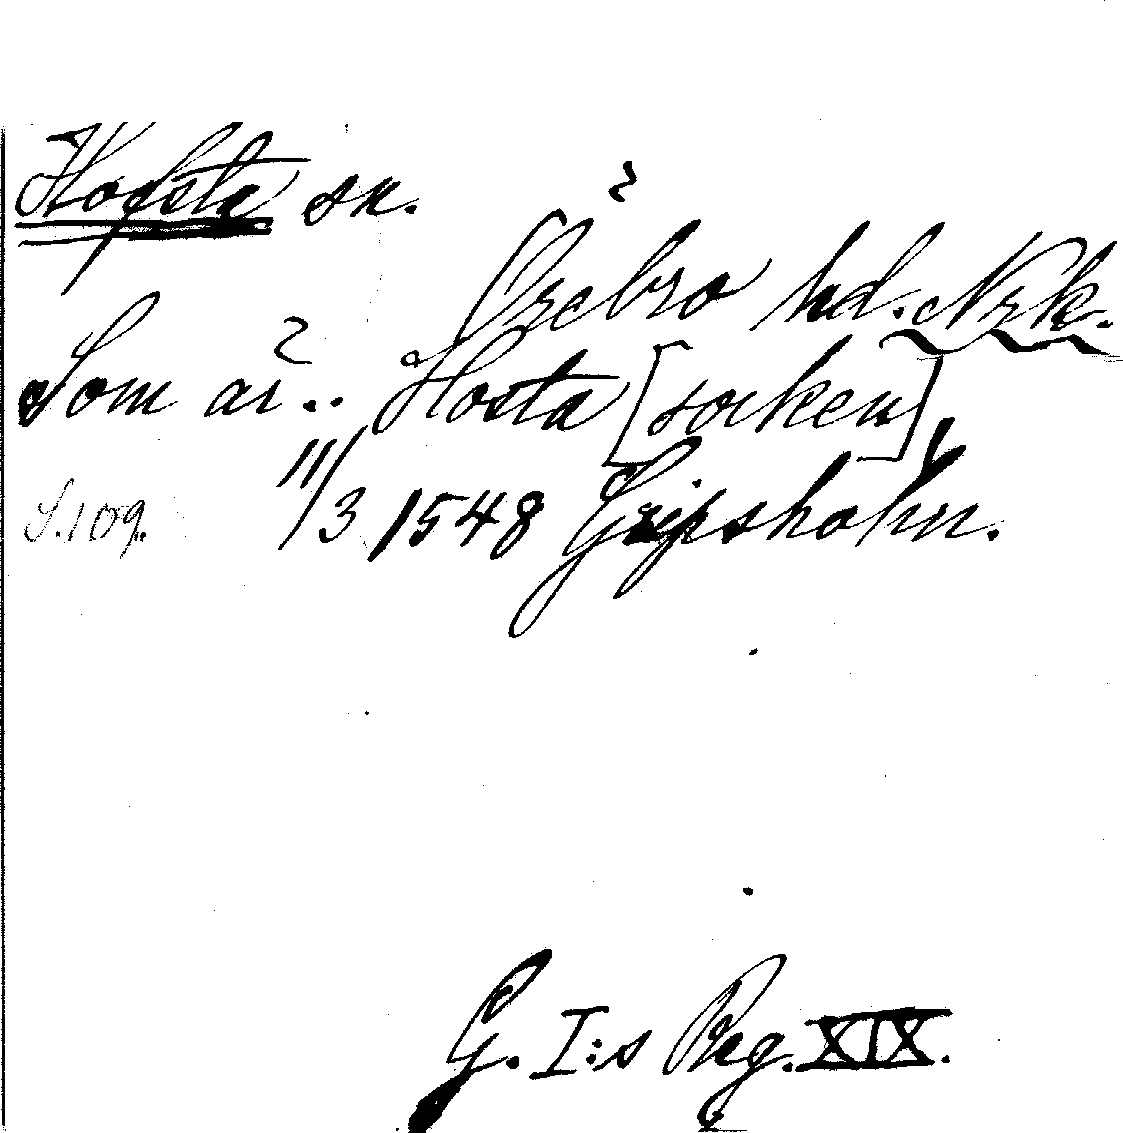 Hofsta sn.
Örebro hd. Nrk.
Som är.. Hosta [socken],
S. 109. 11/3 1548 Gripsholm.
G. I:s Reg. XIX.